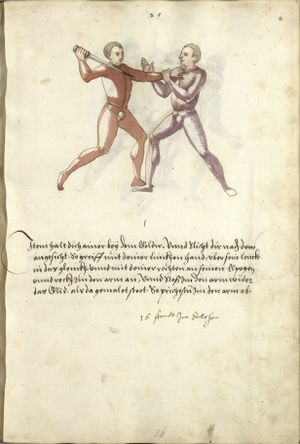 Item halt dich ainer bey dem Goller. Vnnd sticht dir nach dem
angesicht. So greiff mit deiner lincken hand. vber sein linck
in das glenck. vnnd mit deiner rechten an seinen Elpogen
vnnd ruck Im den arm an. Vnd stoss Im den arm wider
das Glid. als da gemalet steet. So prichstu Im den arm ab.
16 stuckh Im dolchen